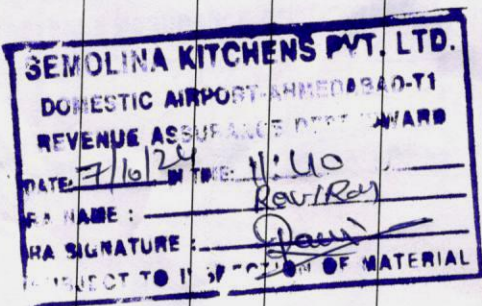 SEMOLINA KITCHENS PVT. LTD.
DOMESTIC AIRPORT-AHMEDABAD-T1
REVENUE ASSURANCE DEPT. INWARD
DATE: 7/10/24 IN TIME: 11:40
RA NAME :
RA SIGNATURE :
SUBJECT TO INSPECTION OF MATERIAL